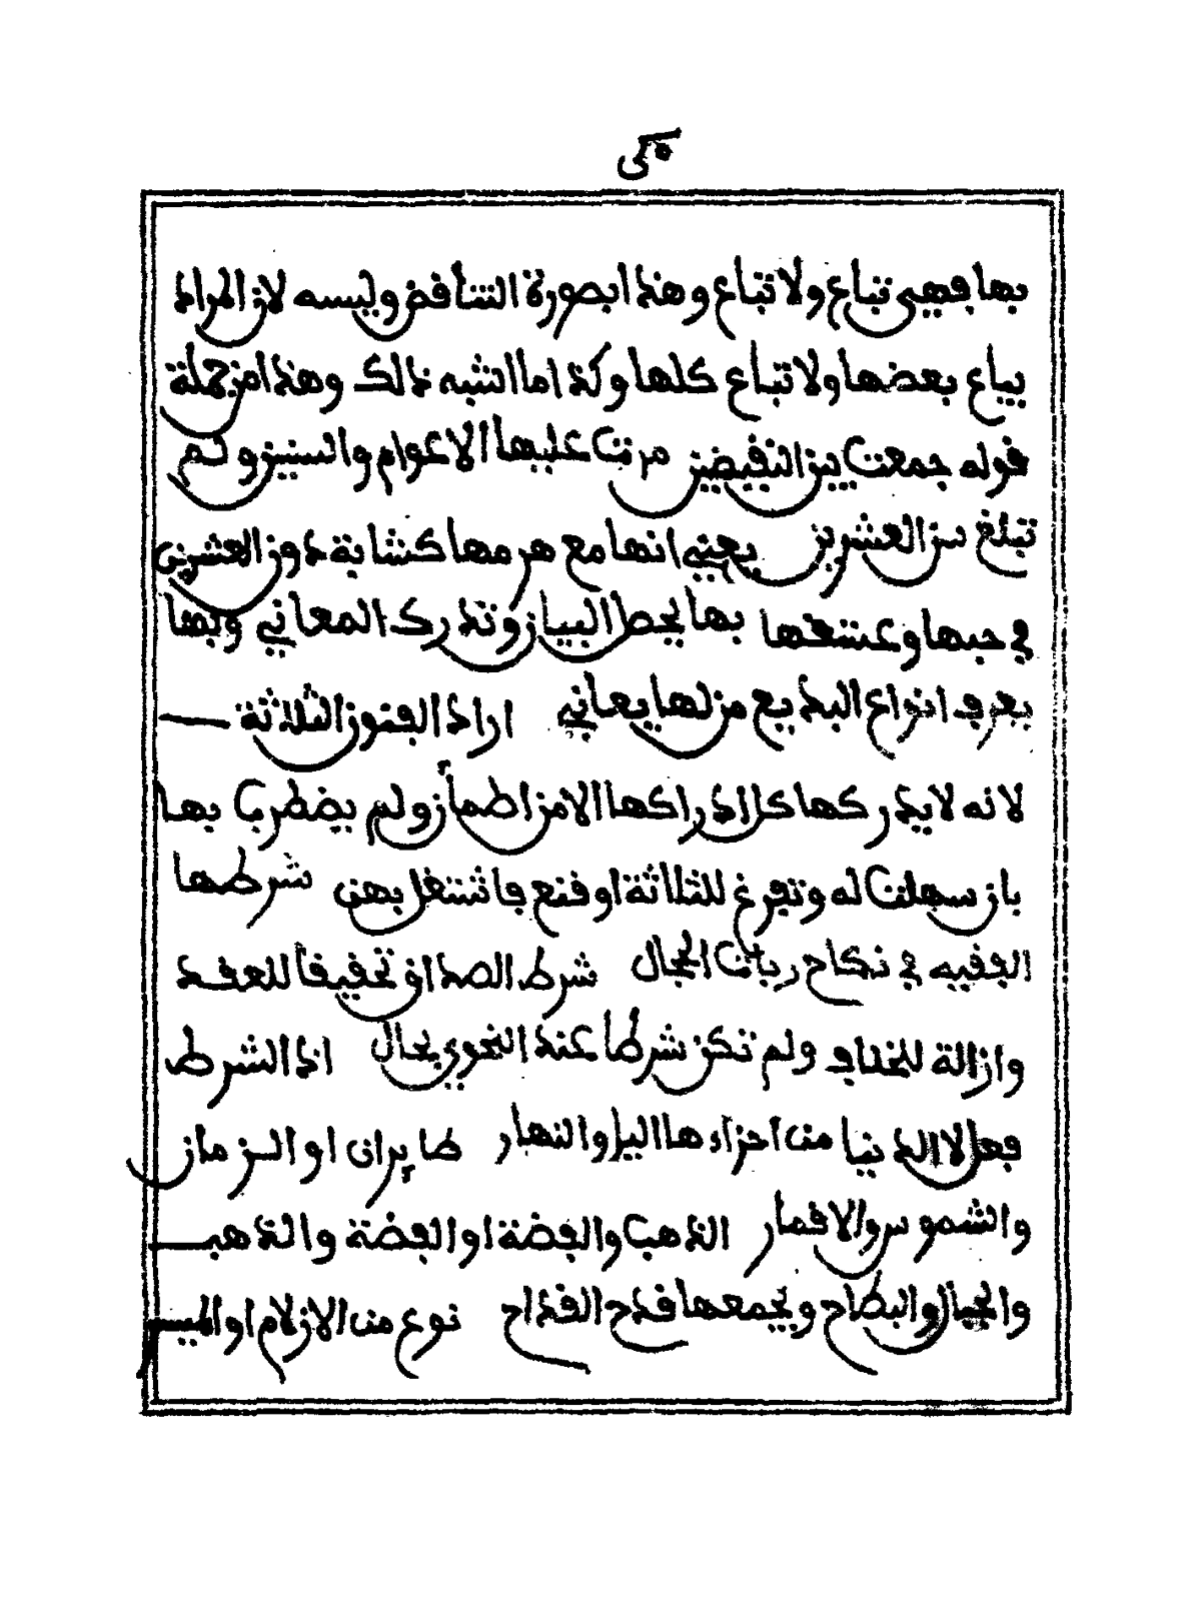 بها فهي تباع ولا تباع وهذا بصورة التناقض وليسه لان المراد
يباع بعضها ولا تباع كلها وكذا ما اشبه ذالك وهذا من جملة
قوله جمعت بين النقيضين مرت عليها الاعوام والسنين ولم
تبلغ سن العشرين يعني انها مع هرمها كشابة دون العشرين
في حبها وعشقها بها يحط البيان وتدرك المعاني وبها
يعرف انواع البديع من لها يعاني اراد الفنون الثلاثة
لانه لا يدركها كل ادراكها الا من اطمأن ولم يضطرب بها
بان سهلت له وتفرغ للثلاثة او قنع فاشتغل بهن شرطها
الفقيه في نكاح ربات الحجال شرط الصداق تحقيقا للعقد
وازالة للخلاف ولم تكن شرطا عند النحوي بحال اذ الشرط
فعل لا الدنيا من اجزاءها اليل والنهار طايران او الزمان
والشموس والاقمار الذهب والفضة او الفضة والذهب
والجمال والبطاح ويجمعها قدح القداح نوع من الازلام او الميسر